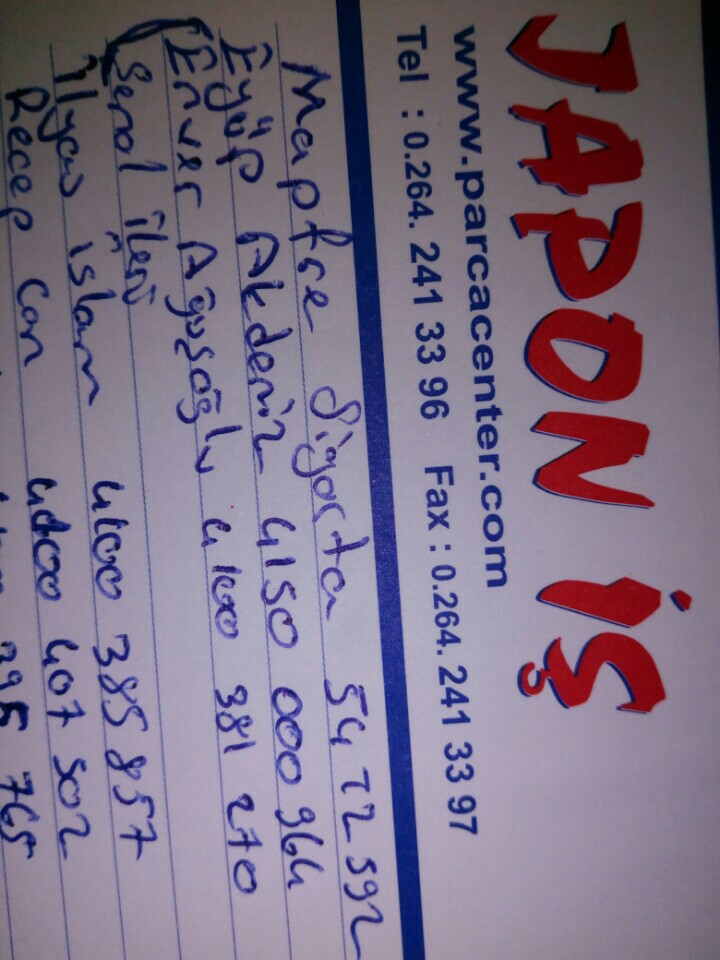 JAPON İŞ
www.parcacenter.com
Tel : 0.264. 241 33 96 Fax : 0.264. 241 33 97
Mapfre Sigorta 5472592
Eyüp Akdeniz 4150 000964
Enver Ağaşoğlu 4100 381 270
Şenol İleri
4100 385 857
İlyas islam 4200 407 502
Recep Can 395 765